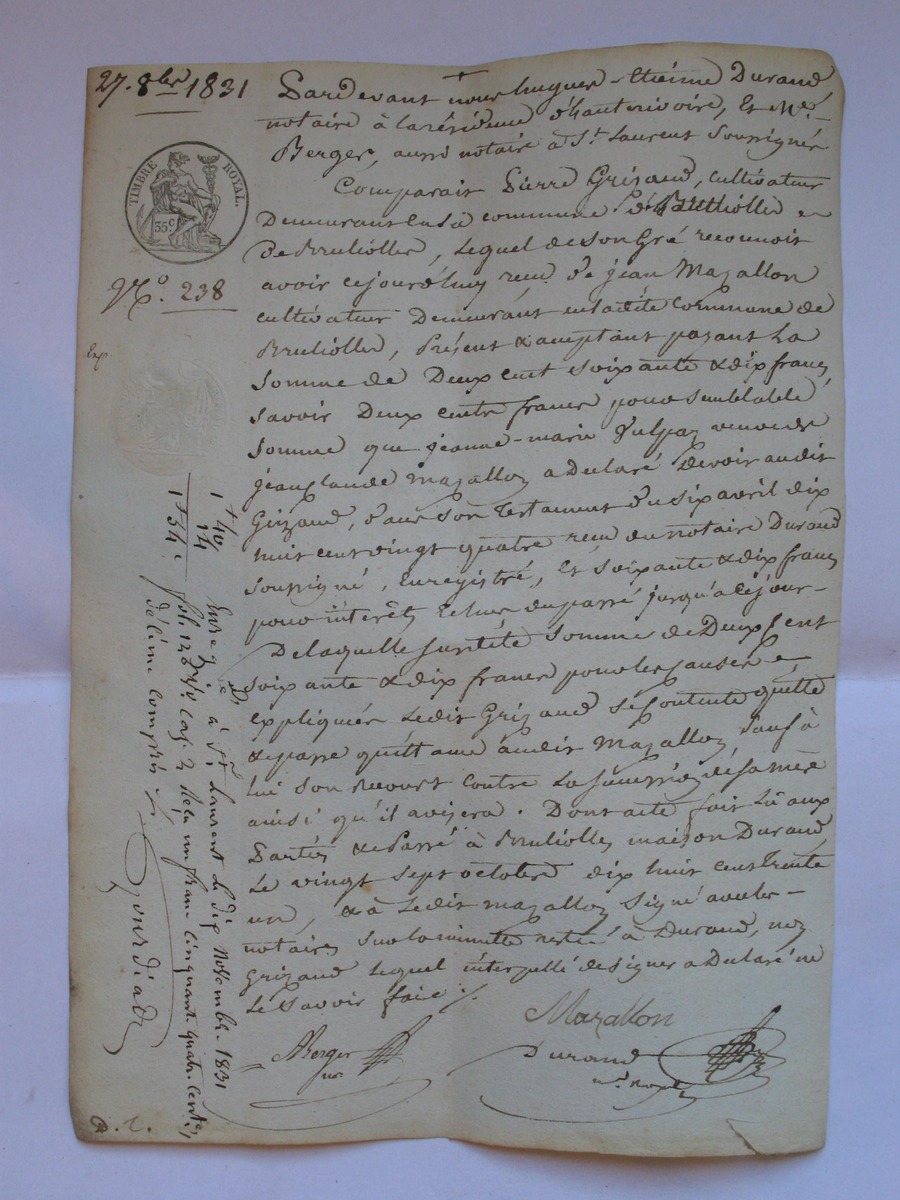 27. 8bre 1831
TIMBRE ROYAL.
35c
No. 238
Exp.
Pardevant nous hugues-Etienne Durand
notaire à la résidence d'hauterivoire, Et Me.
Berger, aussi notaire à St. Laurent Soussignés
Comparait Pierre Grizaud, cultivateur
Demeurant en la commune
de Brulliolles, Lequel de son Gré reconnoit
avoir cejourd'huy reçu de jean Mazallon
cultivateur Demeurant en la dite Commune de
Brulliolles, Présent & acceptant payant La
Somme de Deux cent soixante & dix francs
savoir Deux cents francs pour semblable
Somme que jeanne-marie veuve de
jean Claude Mazallon a Déclaré devoir audit
Grizaud, dans son Testament du six avril dix
huit cent vingt quatre reçu du notaire Durand
soussigné, Enregistré, Et soixante & dix francs
pour intérêts Echus du passé jusqu'à ce jour-
De laquelle susdite Somme de Deux Cent
soixante & dix francs pour les causes
Expliquées Ledit Grizaud se Contente quitte
& passe quittance audit Mazallon, sauf à
lui son recourt contre La succession de sa mère
ainsi qu'il avisera. Dont acte fait Lû aux
Parties & Passé à Brulliolles maison Durand
Le vingt sept octobre dix huit cent trente
un, & à Ledit mazallon signé avec les-
notaires sur la minute restée à Durand, non
Grizaud Lequel interpellé de signer a Déclaré ne
Le savoir faire
Mazallon
Berger
nre
Durand
nre. royal
1 + 40
14
1 + 54 c
Enregistré à St. Laurent Le dix novembre 1831
fol. 126 Vo. Cas. 2 Reçu un franc Cinquante quatre Centes.
décime compris
Gourdiat